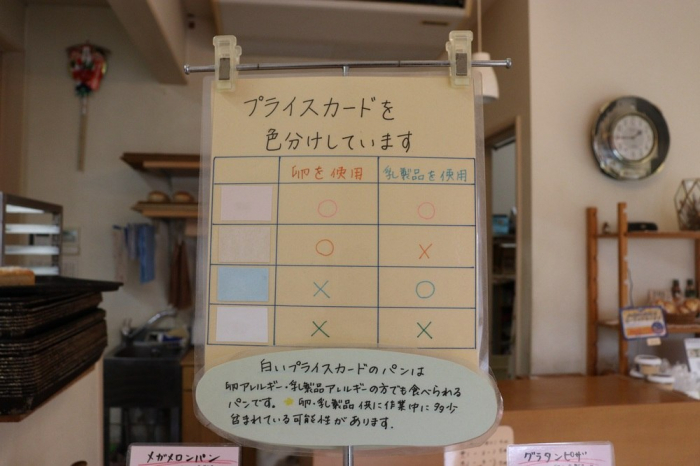 プライスカードを
色分けしています
卵を使用 乳製品を使用
○ ○
○ ×
× ○
× ×
白いプライスカードのパンは
卵アレルギー・乳製品アレルギーの方でも食べられる
パンです。★卵・乳製品 供に作業中に多少
含まれている可能性があります.
メガメロンパン
グラタンピザ